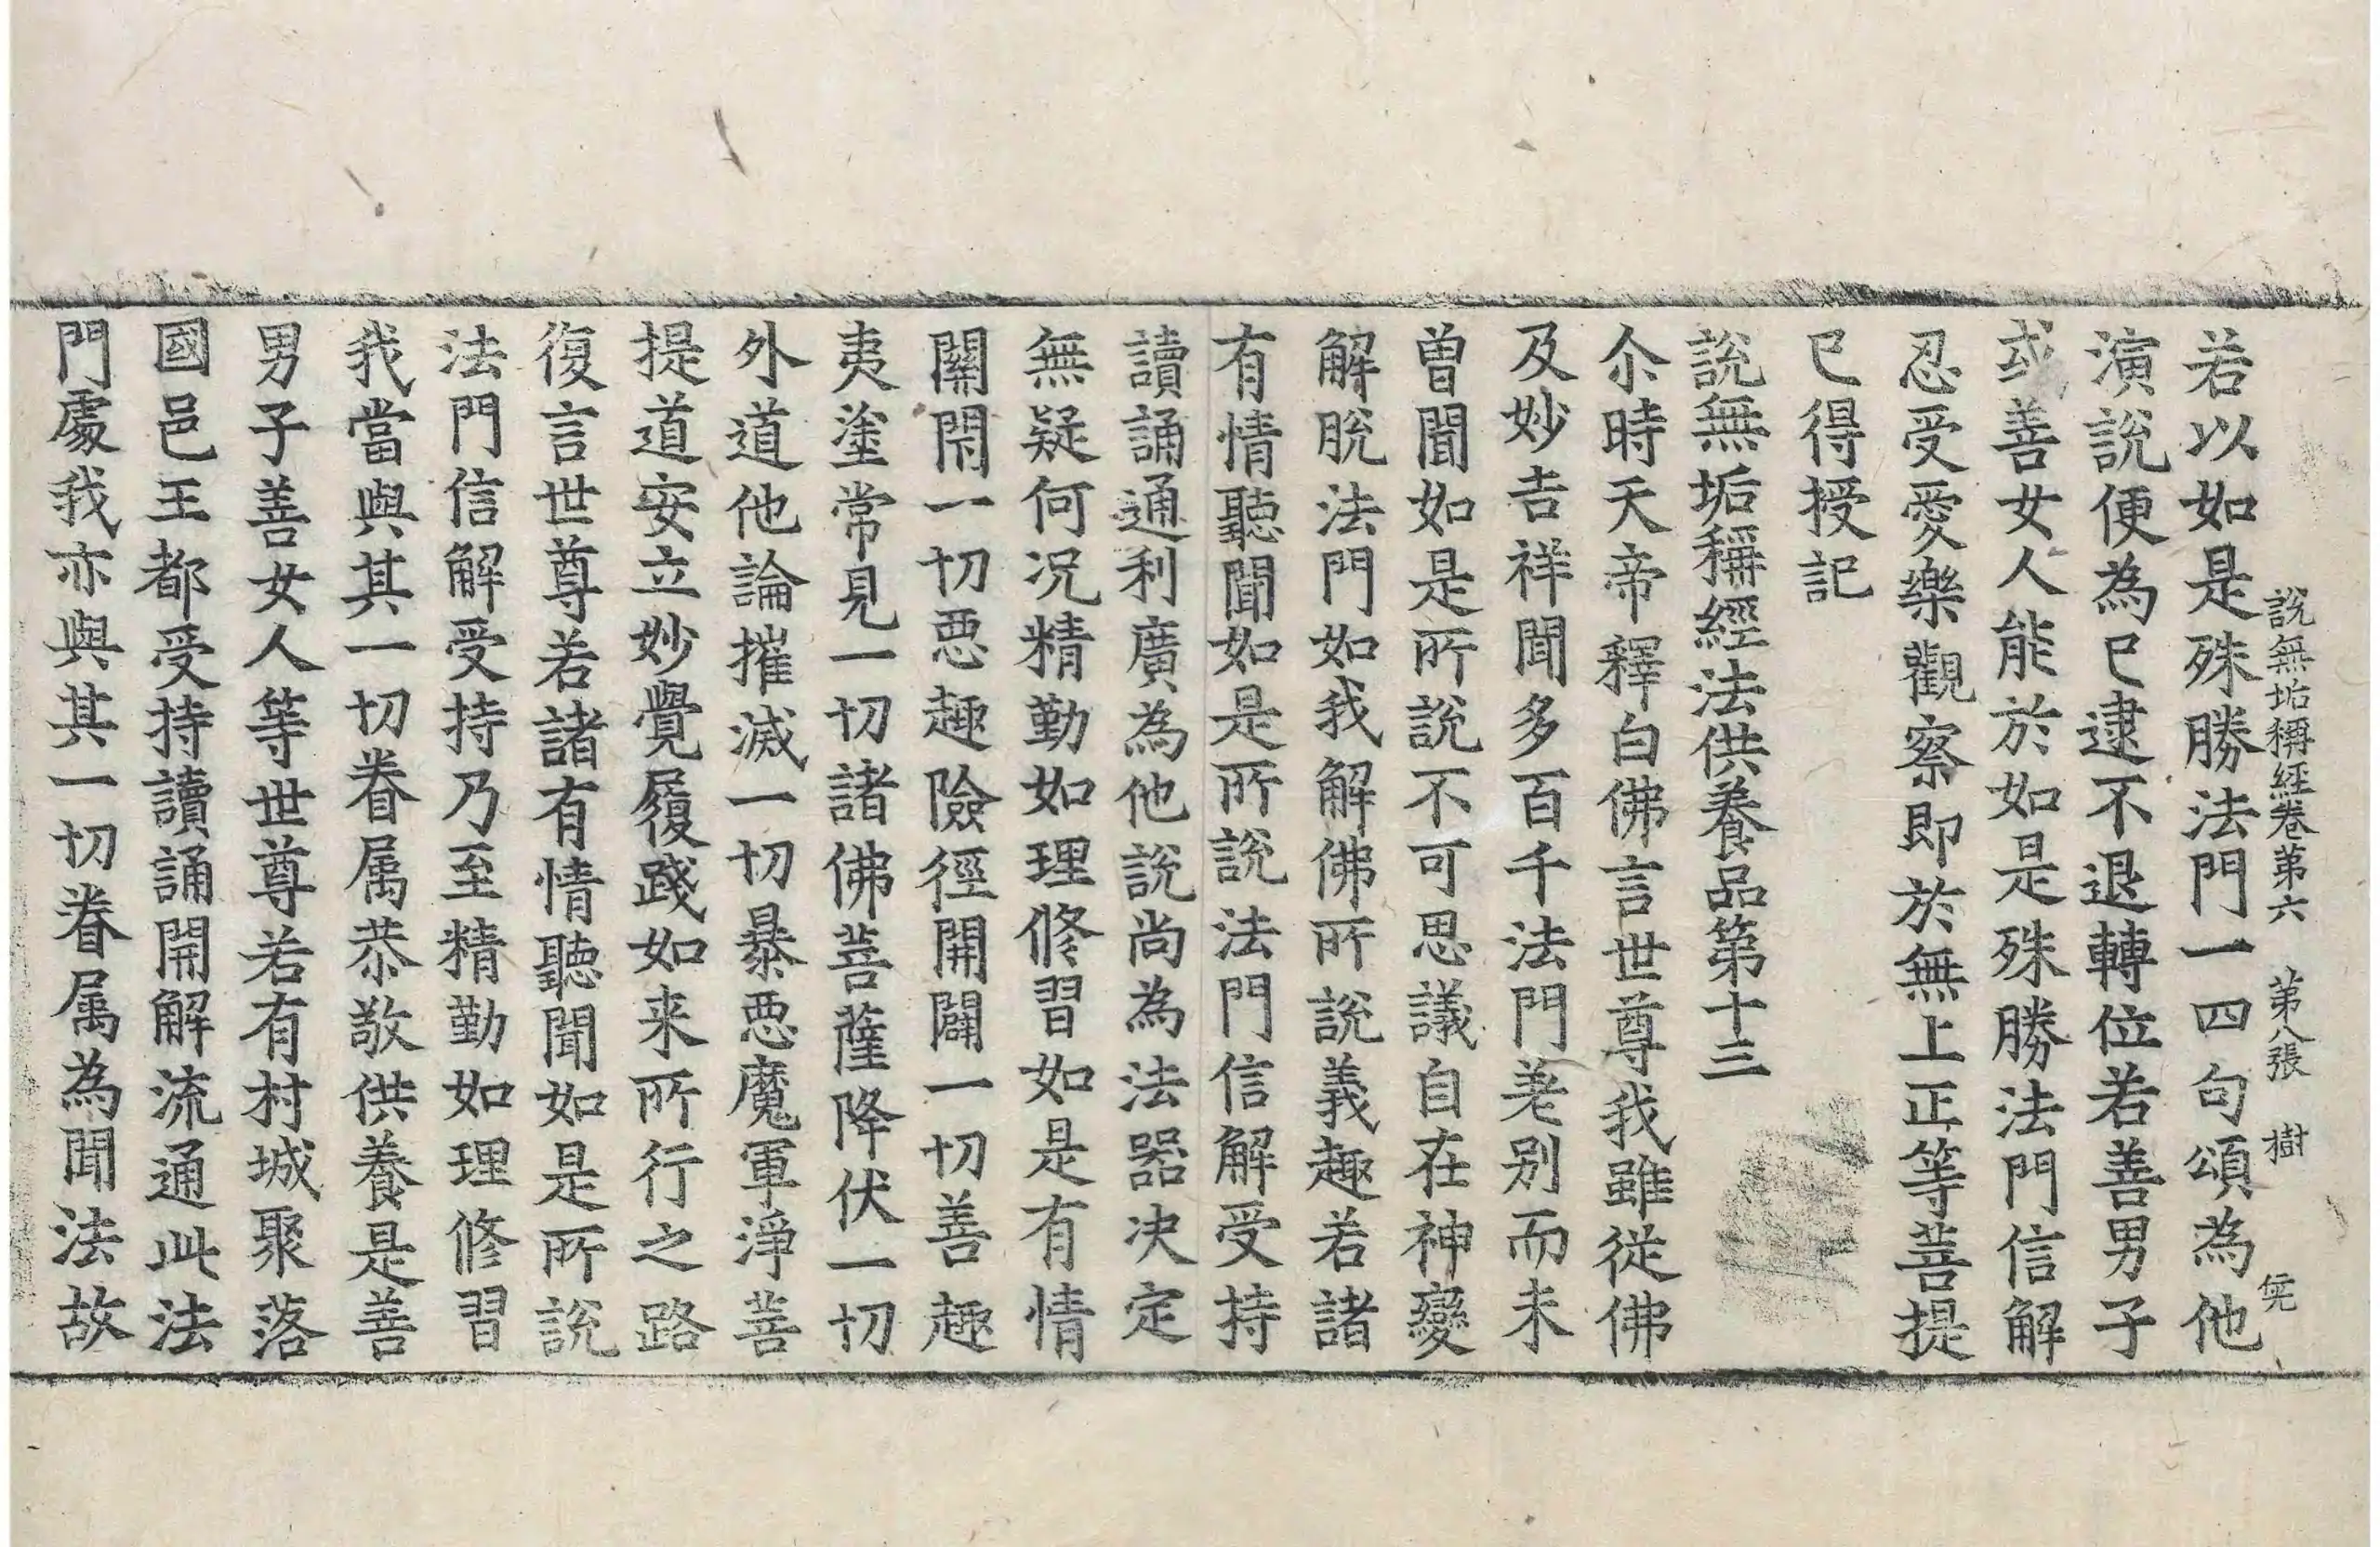 說無垢稱經卷第六 第八張 樹
若以如是殊勝法門一四句頌為他
演說便為已逮不退轉位若善男子
或善女人能於如是殊勝法門信解
忍受愛樂觀察即於無上正等菩提
已得授記
說無垢稱經法供養品第十三
尒時天帝釋白佛言世尊我雖從佛
及妙吉祥聞多百千法門差別而未
曾聞如是所說不可思議自在神變
解脫法門如我解佛所說義趣若諸
有情聽聞如是所說法門信解受持
讀誦通利廣為他說尚為法器决定
無疑何况精勤如理修習如是有情
關閉一切惡趣險徑開闢一切善趣
夷塗常見一切諸佛菩薩降伏一切
外道他論摧滅一切暴惡魔軍淨菩
提道安立妙覺履踐如来所行之路
復言世尊若諸有情聽聞如是所說
法門信解受持乃至精勤如理修習
我當與其一切眷属恭敬供養是善
男子善女人等世尊若有村城聚落
國邑王都受持讀誦開解流通此法
門處我亦與其一切眷属為聞法故